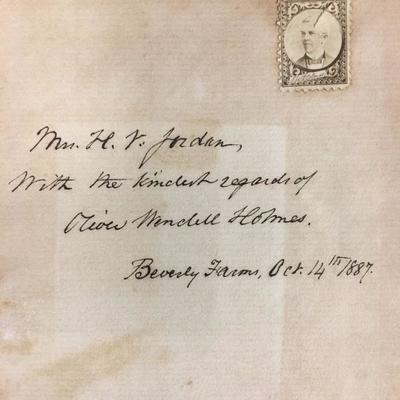 Mrs. H. V. Jordan,
With the kindest regards of
Oliver Wendell Holmes.
Beverly Farms, Oct. 14th 1887.